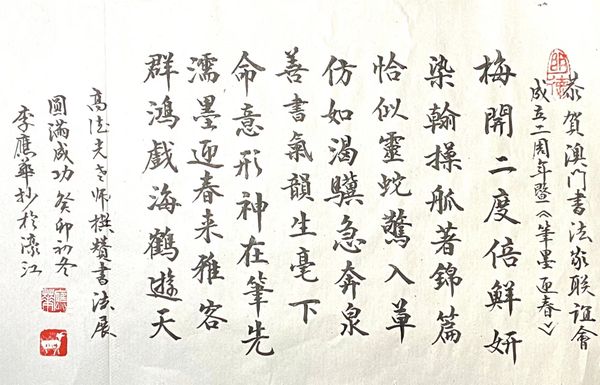 恭賀澳門書法家聯誼會
成立二周年暨《筆墨迎春》
梅開二度倍鮮妍
染翰操觚著錦篇
恰似靈蛇驚入草
仿如渴驥急奔泉
善書氣韻生毫下
命意形神在筆先
濡墨迎春来雅客
群鴻戲海鶴遊天
高德光老師撰贊書法展
圓滿成功 癸卯初冬
李應華抄於濠江